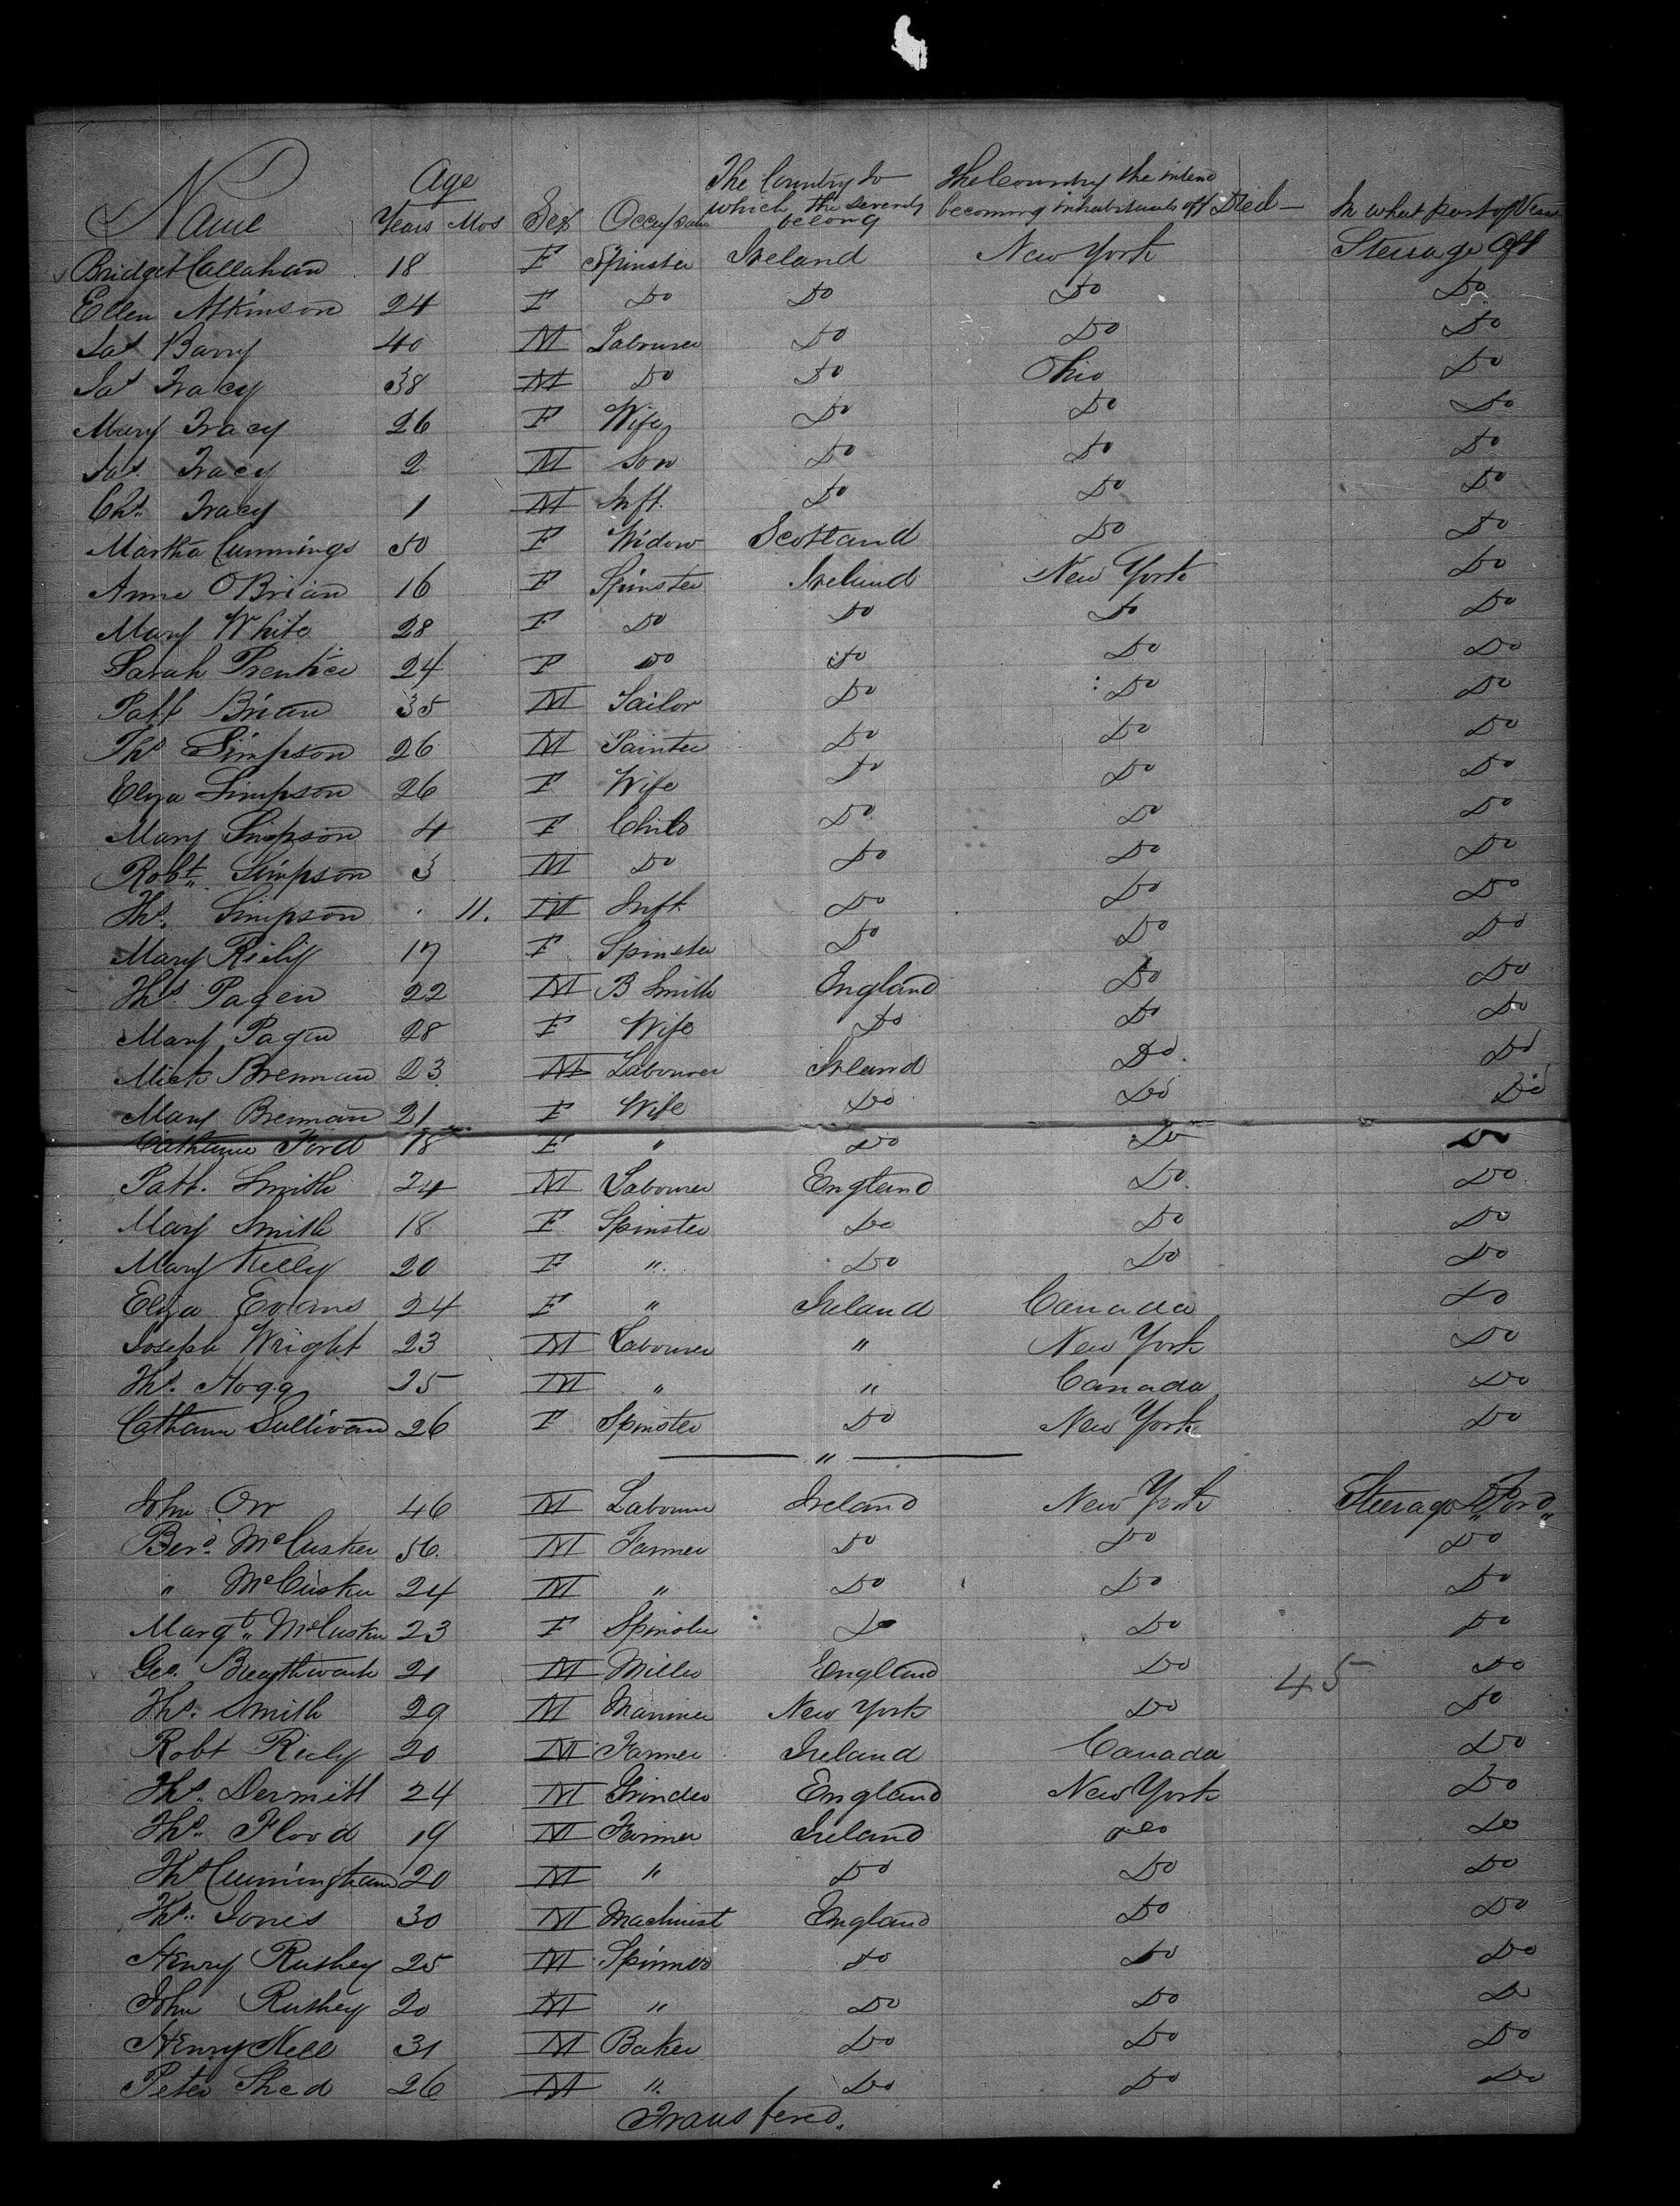 Name Age Years Mos Sex Occupation The Country to which the severely belong The Country the intend becoming inhabitants off Died In what part of Vess
Bridget Callahan 18 F Spinster Ireland New York Steerage Aft
Ellen Atkinson 24 F Do Do Do Do
Jas Barry 40 M Labourer Do Do Do
Jas Tracy 38 M Do Do Ohio Do
Mary Tracy 26 F Wife Do Do Do
Jas. Tracy 2 M Son Do Do Do
Chs. Tracy 1 M Inft. Do Do Do
Martha Cummings 50 F Widow Scotland Do Do
Anne OBrian 16 F Spinster Ireland New York Do
Mary White 28 F Do Do Do Do
Sarah Prentice 24 F Do Do Do Do
Patt Brian 35 M Sailor Do Do Do
Ths Simpson 26 M Painter Do Do Do
Eliza Simpson 26 F Wife Do Do Do
Mary Simpson 4 F Child Do Do Do
Robt. Simpson 3 M Do Do Do Do
Ths. Simpson 11. M Inft. Do Do Do
Mary Rielly 17 F Spinster Do Do Do
Ths. Pagen 22 M B Smith England Do Do
Mary Pagen 28 F Wife Do Do Do
Mick Brennan 23 M Labourer Ireland Do Do
Mary Brennan 21 F Wife Do Do Do
Catharine Ford 18 F " Do Do Do
Patt. Smith 24 M Labourer England Do Do
Mary Smith 18 F Spinster Do Do Do
Mary Kelly 20 F " Do Do Do
Eliza Evans 24 F " Ireland Canada Do
Joseph Wright 23 M Labourer " New York Do
Ths. Hogg 25 M " " Canada Do
Catharin Sullivan 26 F Spinster Do New York Do
"
John Orr 46 M Labourer Ireland New York Steerage Ford
Berd. McCusker 56. M Farmer Do Do Do
" McCusker 24 M " Do Do Do
Margt. McCusker 23 F Spinster Do Do Do
Geo. 21 M Miller England Do 45 Do
Ths. Smith 29 M Mariner New York Do Do
Robt Riely 20 M Farmer Ireland Canada Do
Ths. Dermitt 24 M Grinder England New York Do
Ths. Flood 19 M Farmer Ireland Do Do
Ths Cunningham 20 M " Do Do Do
Ths. Jones 30 M Machinist England Do Do
Henry Rushey 25 M Spinner Do Do Do
John Rushey 20 M " Do Do Do
Henry Nell 31 M Baker Do Do Do
Peter Shed 26 M " Do Do Do
Transfered.